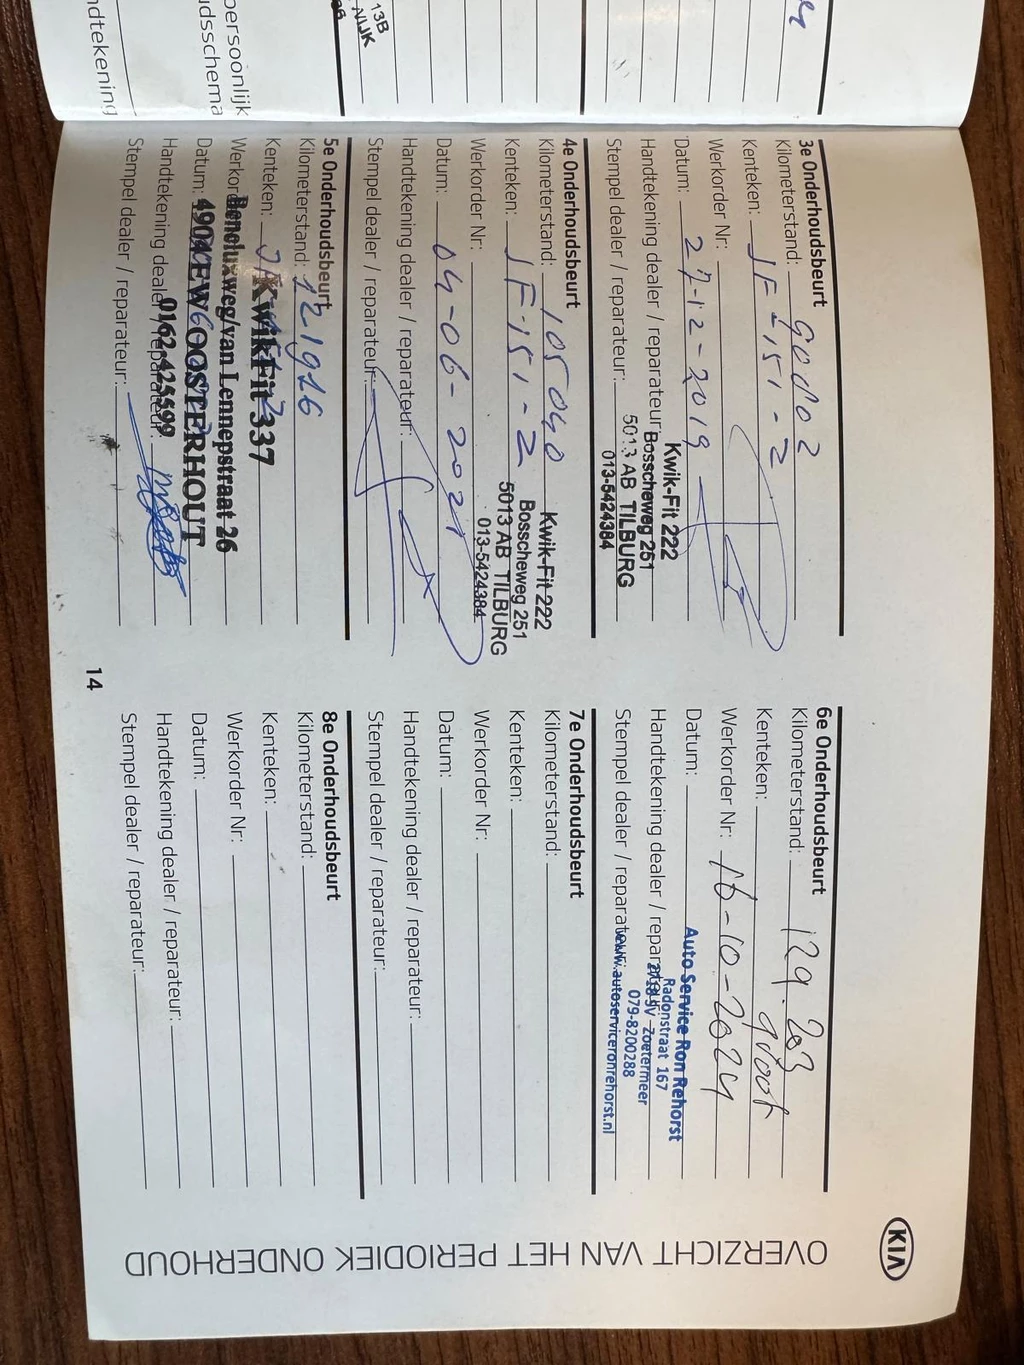 KIA
OVERZICHT VAN HET PERIODIEK ONDERHOUD
3e Onderhoudsbeurt
Kilometerstand: 90002
Kenteken: JF-151-Z
Werkorder Nr:
Datum: 27-12-2019
Handtekening dealer / reparateur:
Stempel dealer / reparateur:
Kwik-Fit 222
Bosscheweg 251
5013 AB TILBURG
013-5424384
4e Onderhoudsbeurt
Kilometerstand: 105040
Kenteken: JF-151-Z
Werkorder Nr:
Datum: 04-06-2021
Handtekening dealer / reparateur:
Stempel dealer / reparateur:
Kwik-Fit 222
Bosscheweg 251
5013 AB TILBURG
013-5424384
5e Onderhoudsbeurt
Kilometerstand: 121916
Kenteken:
Werkorder
Datum:
Handtekening dealer / reparateur:
Stempel dealer / reparateur:
KwikFit 337
Beneluxweg/van Lennepstraat 26
4904EW OOSTERHOUT
0162-425599
6e Onderhoudsbeurt
Kilometerstand: 129.203
Kenteken: groot
Werkorder Nr: 16-10-2024
Datum:
Handtekening dealer / reparateur:
Stempel dealer / reparateur:
Auto Service Ron Rehorst
Radonstraat 167
Zoetermeer
079-8200288
www.autoserviceronrehorst.nl
7e Onderhoudsbeurt
Kilometerstand:
Kenteken:
Werkorder Nr:
Datum:
Handtekening dealer / reparateur:
Stempel dealer / reparateur:
8e Onderhoudsbeurt
Kilometerstand:
Kenteken:
Werkorder Nr:
Datum:
Handtekening dealer / reparateur:
Stempel dealer / reparateur:
14
13B
persoonlijk
dsschema
dtekening